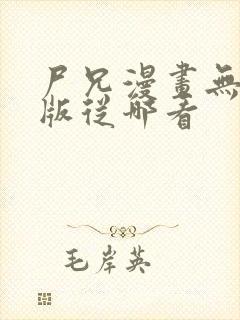 尸兄漫畫無
版從哪看
毛岸英